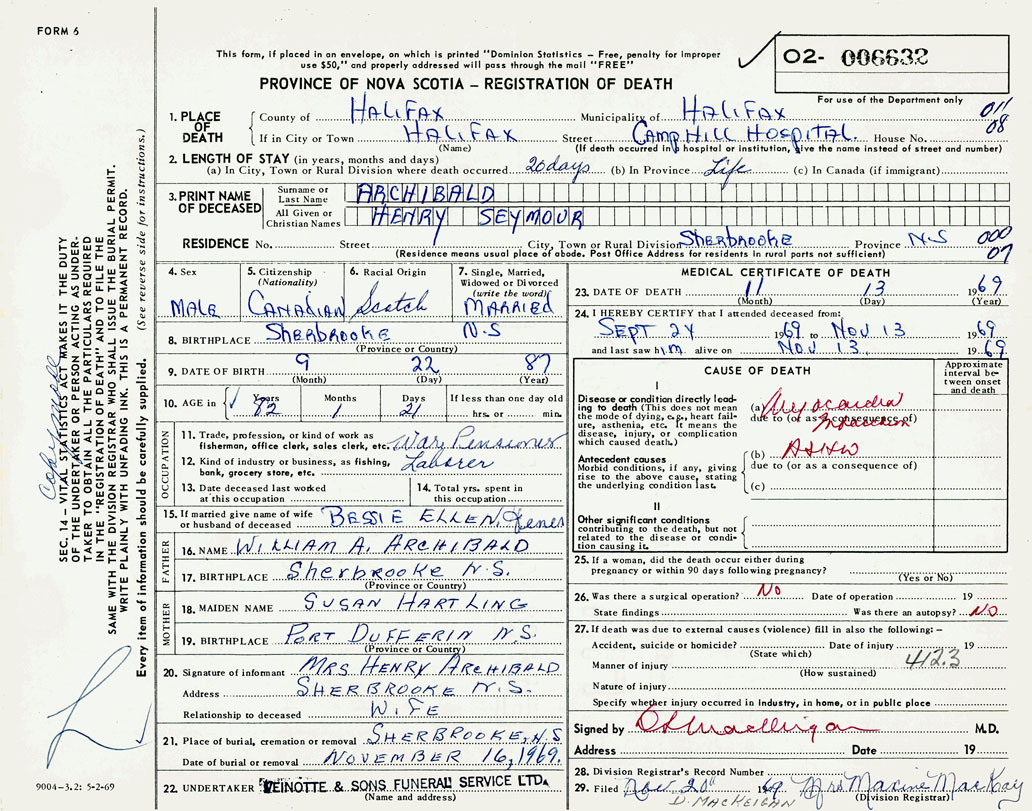 FORM 6
This form, if placed in an envelope, on which is printed "Dominion Statistics – Free, penalty for improper
use $50," and properly addressed will pass through the mail "FREE"
PROVINCE OF NOVA SCOTIA – REGISTRATION OF DEATH
02- 006632
For use of the Department only
1. PLACE OF DEATH
County of HALIFAX Municipality of HALIFAX 011
If in City or Town HALIFAX Street CAMP HILL HOSPITAL. House No. 08
(Name) (If death occurred in a hospital or institution, give the name instead of street and number)
2. LENGTH OF STAY (in years, months and days)
(a) In City, Town or Rural Division where death occurred 20 days (b) In Province Life (c) In Canada (if immigrant)
3. PRINT NAME OF DECEASED
Surname or Last Name ARCHIBALD
All Given or Christian Names HENRY SEYMOUR
RESIDENCE No. Street City, Town or Rural Division SHERBROOKE Province N.S 000
(Residence means usual place of abode. Post Office Address for residents in rural parts not sufficient) 07
4. Sex
MALE
5. Citizenship
(Nationality)
CANADIAN
6. Racial Origin
Scotch
7. Single, Married,
Widowed or Divorced
(write the word)
MARRIED
8. BIRTHPLACE SHERBROOKE N.S
(Province or Country)
9. DATE OF BIRTH 9 22 87
(Month) (Day) (Year)
10. AGE in Years Months Days If less than one day old
82 1 21 hrs. or min.
OCCUPATION
11. Trade, profession, or kind of work as
fisherman, office clerk, sales clerk, etc. War Pensioner
12. Kind of industry or business, as fishing,
bank, grocery store, etc. Laborer
13. Date deceased last worked
at this occupation
14. Total yrs. spent in
this occupation
15. If married give name of wife
or husband of deceased BESSIE ELLEN
FATHER
16. NAME WILLIAM A. ARCHIBALD
17. BIRTHPLACE Sherbrooke N.S.
(Province or Country)
MOTHER
18. MAIDEN NAME SUSAN HARTLING
19. BIRTHPLACE PORT DUFFERIN N.S.
(Province or Country)
20. Signature of informant MRS HENRY ARCHIBALD
Address SHERBROOKE N.S.
Relationship to deceased WIFE
21. Place of burial, cremation or removal SHERBROOKE, N.S
Date of burial or removal NOVEMBER 16, 1969.
22. UNDERTAKER VEINOTTE & SONS FUNERAL SERVICE LTD.
(Name and address)
MEDICAL CERTIFICATE OF DEATH
23. DATE OF DEATH 11 13 1969
(Month) (Day) (Year)
24. I HEREBY CERTIFY that I attended deceased from:
SEPT 24 1969 to NOV 13 1969
and last saw him alive on NOV 13. 1969
CAUSE OF DEATH
Approximate
interval be-
tween onset
and death
I
Disease or condition directly lead-
ing to death (This does not mean
the mode of dying, e.g., heart fail-
ure, asthenia, etc. It means the
disease, injury, or complication
which caused death.)
(a) Myocardial
infarction
due to (or as a consequence of)
Antecedent causes
Morbid conditions, if any, giving
rise to the above cause, stating
the underlying condition last.
(b) ASHD
due to (or as a consequence of)
(c)
II
Other significant conditions
contributing to the death, but not
related to the disease or condi-
tion causing it.
25. If a woman, did the death occur either during
pregnancy or within 90 days following pregnancy?
(Yes or No)
26. Was there a surgical operation? NO Date of operation 19
State findings Was there an autopsy? NO
27. If death was due to external causes (violence) fill in also the following: –
Accident, suicide or homicide? Date of injury 19
(State which) 412.3
Manner of injury
(How sustained)
Nature of injury
Specify whether injury occurred in Industry, in home, or in public place
Signed by M.D.
Address Date 19
28. Division Registrar's Record Number
29. Filed Nov 20 1969 Mrs Maxine MacKay
D. MACKEIGAN (Division Registrar)
SEC. 14 – VITAL STATISTICS ACT MAKES IT THE DUTY
OF THE UNDERTAKER OR PERSON ACTING AS UNDER-
TAKER TO OBTAIN ALL THE PARTICULARS REQUIRED
IN THE "REGISTRATION OF DEATH" AND TO FILE THE
SAME WITH THE DIVISION REGISTRAR WHO SHALL ISSUE THE BURIAL PERMIT.
WRITE PLAINLY WITH UNFADING INK. THIS IS A PERMANENT RECORD.
Every item of information should be carefully supplied. (See reverse side for instructions.)
9004-3.2: 5-2-69